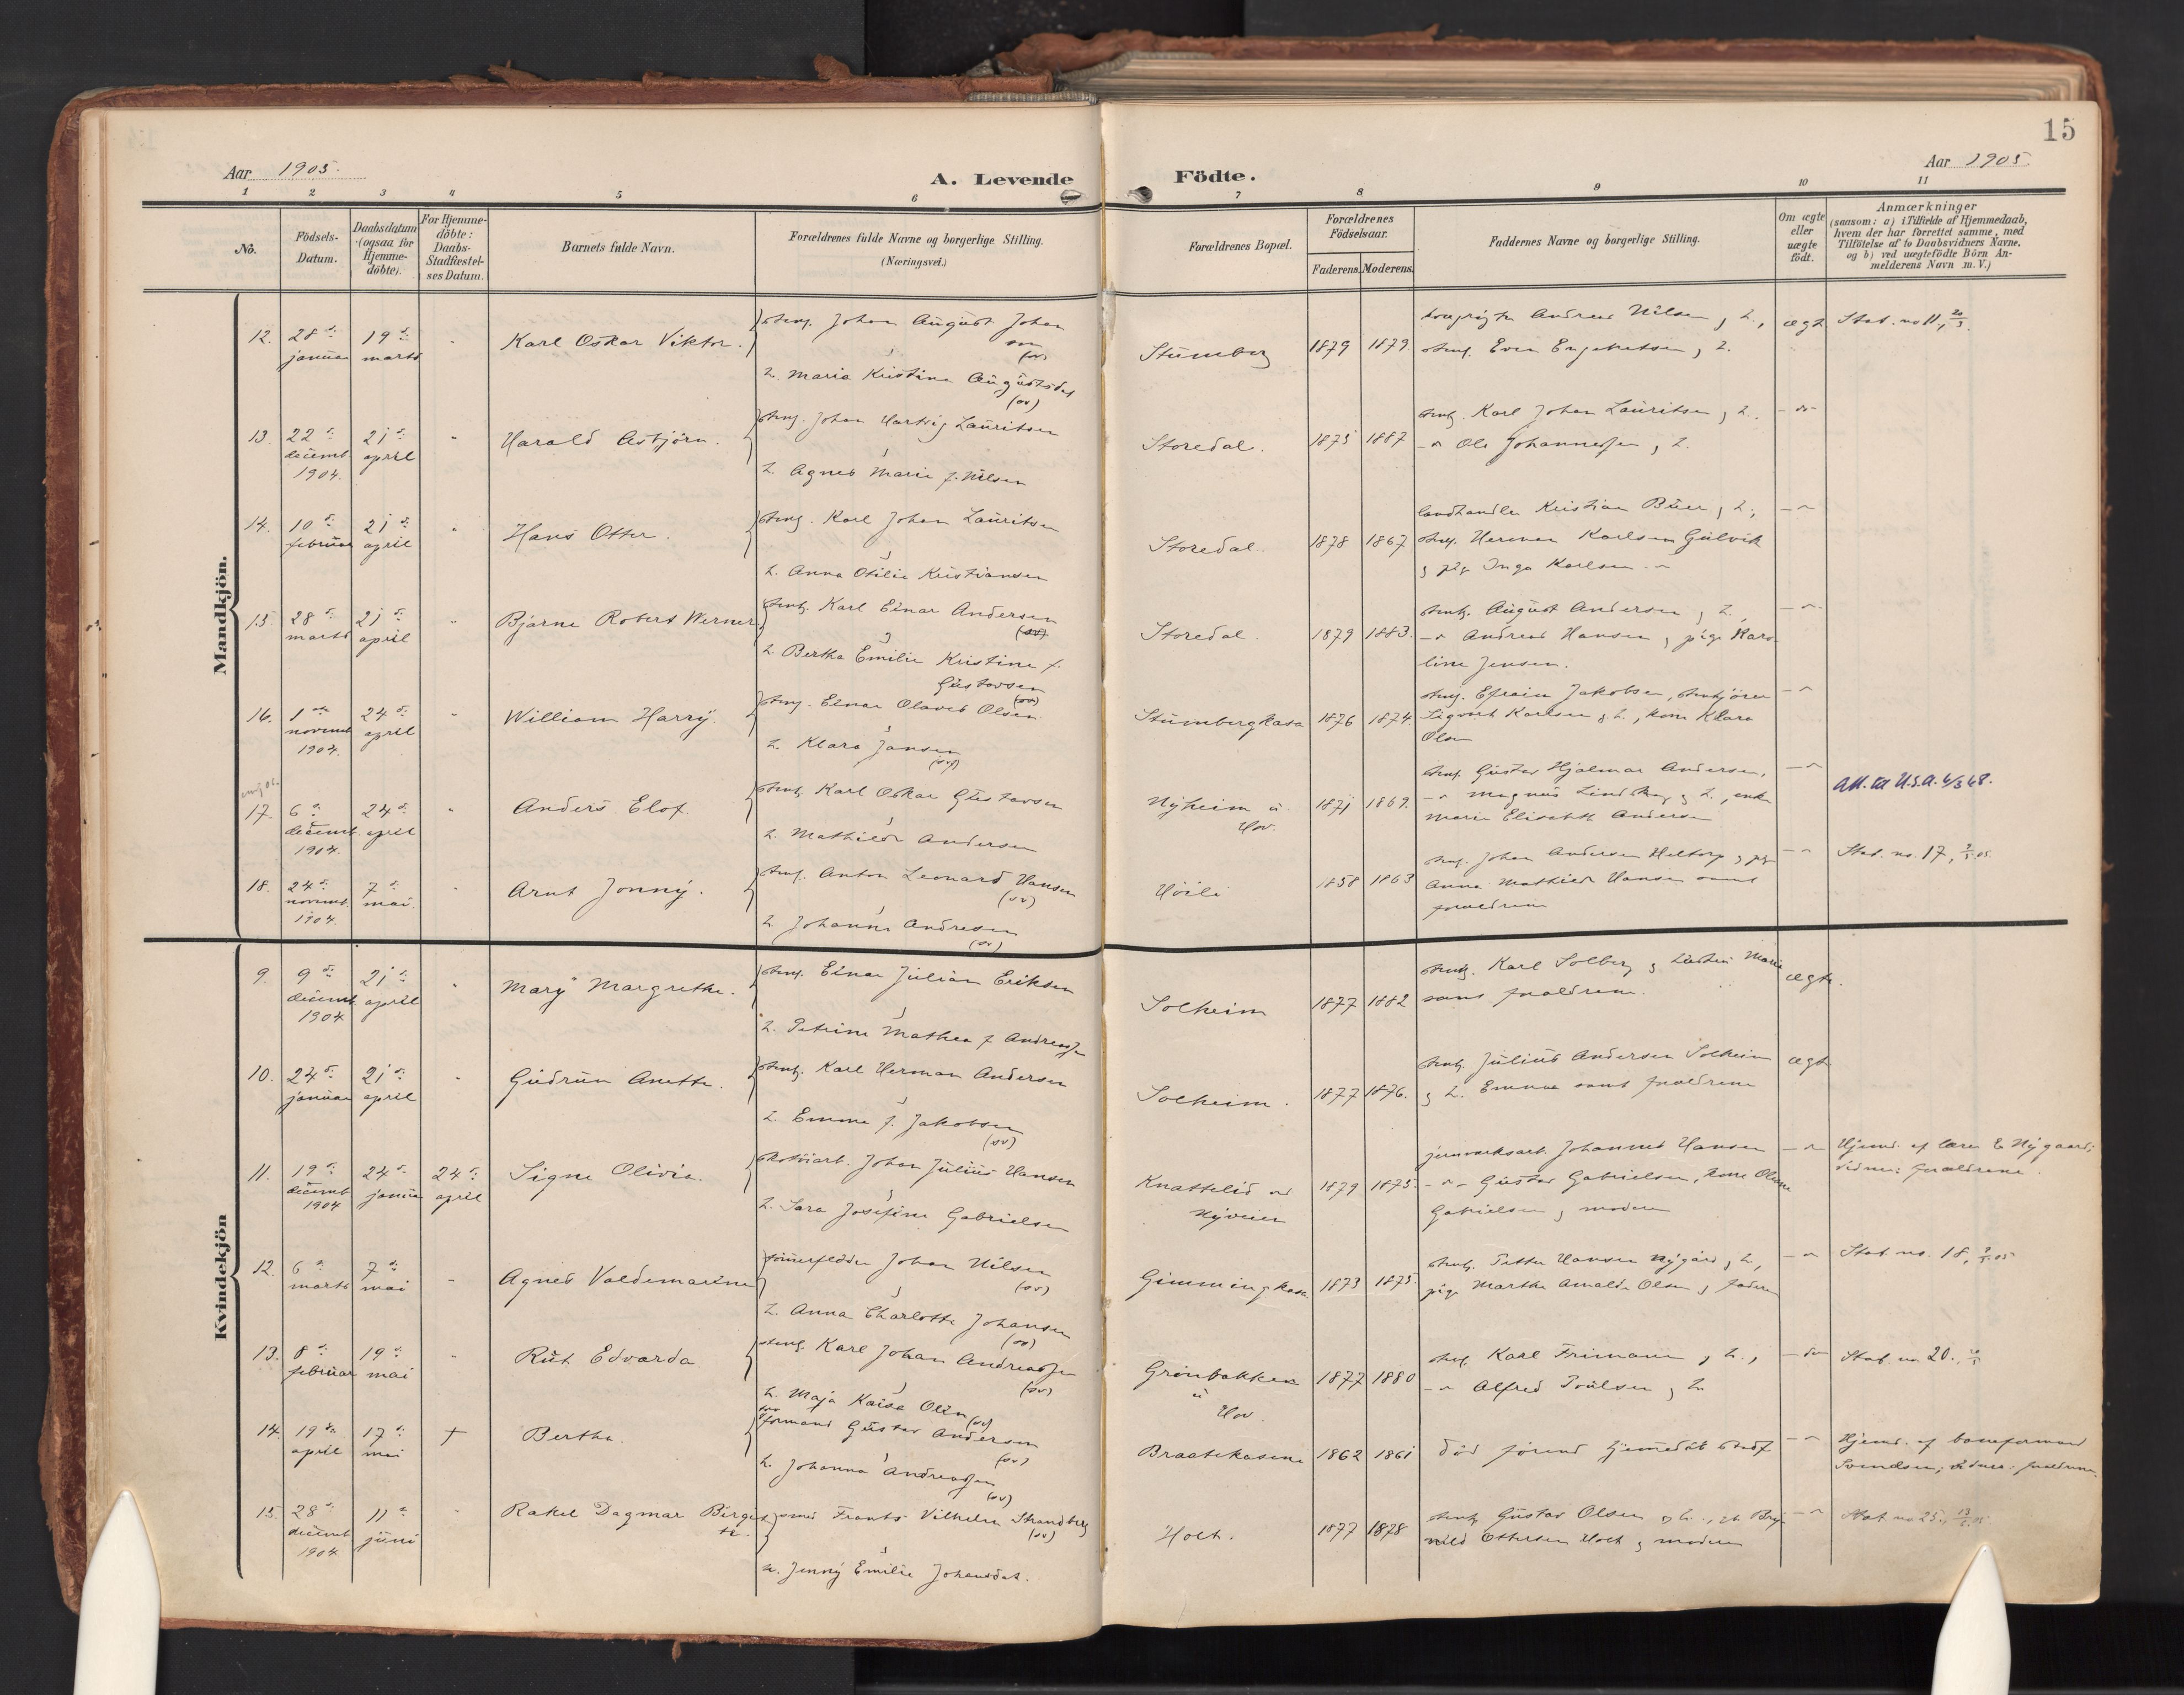 15
Aar 1905.
A. Levende
Födte.
Aar 1905
1 2 3 4 5 6 7 8 9 10 11
No.
Födsels-Datum.
Daabsdatum (ogsaa for Hjemme-döbte).
For Hjemme-döbte: Daabs-Stadfæstel-ses Datum.
Barnets fulde Navn.
Forældrenes fulde Navne og borgerlige Stilling.
(Næringsvei.)
Forældrenes Bopæl.
Forældrenes Födselsaar.
Faderens. Moderens.
Faddernes Navne og borgerlige Stilling.
Om ægte eller uægte födt.
Anmærkninger
(saasom: a) i Tilfælde af Hjemmedaab, hvem der har forrettet samme, med Tilföielse af to Daabsvidners Navne, og b) ved uægtefödte Börn An-melderens Navn m. V.)
Mandkjön.
12. 28de januar 19de marts " Karl Oskar Viktor. stenh. Johan August Johansson (sv)
h. Maria Kristina Augustsdat (sv)
Stumberg 1879 1879. Andreas Nilsen & h., ægte Stat. no 11, 20/3
stenh. Even Engebretsen & h.
13. 22de decemb. 1904. 21de april " Harald Asbjørn. stenh. Johan Hartvig Lauritsen
h. Agnes Marie f. Nilsen
Storedal. 1875 1887 stenh. Karl Johan Lauritsen & h. -do-
-"- Ole Johannessen & h.
14. 10de februar 21de april " Hans Otter. stenh. Karl Johan Lauritsen
h. Anna Otilie Kristiansen
Storedal. 1878 1867 landhandler Kristian Buer & h., -"-
stenh. Herman Karlsen Gulvik
& pige Inga Karlsen
15. 28de marts 21de april " Bjarne Robert Werner stenh. Karl Einar Andersen (sv)
h. Bertha Emilie Kristine f.
Gustavsen (sv)
Storedal 1879 1883. stenh. August Andersen & h., -"-
-"- Andreas Hansen & pige Karo-
line Jensen.
16. 1ste novemb. 1904. 24de april " William Harry. stenh. Einar Olaves Olsen
h. Klara Jansen (sv)
Stumbergkasa 1876 1874. stenh. Efraim Jakobsen, -"-
Sigvart Karlsen & h., kone Klara
Olsen
17. 6te decemb. 1904. 24de april " Anders Elof. stenh. Karl Oskar Gustavsen
h. Mathilde Andersen
Nyheim u. Hov. 1871 1869. stenh. Gustav Hjalmar Andersen, -"- Att. til U.S.A. 4/3 68.
-"- Magnus & h., enke
Marie Elisabeth Andersen
18. 24de novemb. 1904. 7de mai. " Arnt Jonny. stenh. Anton Leonard Hansen (sv)
h. Johanne Andresen (sv)
Höili 1858 1863 stenh. Johan Andersen Heltorp & pige -"- Stat. no. 17, 05.
Anna Mathilde Hansen samt
forældrene
Kvindekjön
9. 9de decemb. 1904 21de april " Mary Margrethe. stenh. Einar Julian Eriksen
h. Petrine Mathea f. Andreassen
Solheim 1877 1882 stenh. Karl Solberg & hustru Marie ægte.
samt forældrene.
10. 24de januar 21de april " Gudrun Anette. stenh. Karl Herman Andersen
h. Emma f. Jakobsen (sv)
Solheim. 1877 1876. stenh. Julius Andersen Solheim ægte
& h. Emma samt forældrene
11. 19de decemb 1904 24de januar 24de april Signe Olivia. skotöiarb. Johan Julius Hansen
h. Sara Josefine Gabrielsen
Knattelid ved Nyveien 1879 1875. jernverksarb. Johannes Hansen -"- Hjemd. af lærer E. Nygaard;
-"- Gustav Gabrielsen, kone
Gabrielsen & moderen vidner: forældrene.
12. 6te marts 7de mai " Agnes Valdemarine Johan Nilsen (sv)
h. Anna Charlotte Johansen (sv)
Gimmingkasa. 1873 1875. stenh. Petter Hansen Nygård & h., -"- Stat. no. 18, 05
pige Marthe Amalde Olsen & faderen
13. 8de februar 19de mai " Rut Edvarda stenh. Karl Johan Andreassen (sv)
h. Maja Kaisa Olsen (sv)
Grönbakken u. Hov. 1877 1880 stenh. Karl Frimann & h., -do- Stat. no 20.
-"- Alfred Poulsen & h.
14. 19de april 17de mai † Bertha. formand Gustav Andersen (sv)
h. Johanna Andreassen (sv)
Braatekasene 1862 1861 död förend hjemmedåb stadf. -"- Hjemd. af baneformand
Svendsen; vidner: forældrene.
15. 28de decemb. 1904 11te juni " Rakel Dagmar Birgit-
te. smed Frants Vilhelm Strandberg (sv)
h. Jenny Emilie Johansdat.
Holt. 1877 1878 stenh. Gustav Olsen & h., -"- Stat. no 25, 05
Ottersen Holt & moderen